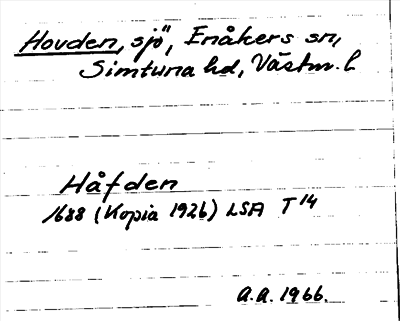 Hovden, sjö, Enåkers sn,
Simtuna hd, Västm. l
Håfden
1688 (Kopia 1926) LSA T 14
A.A. 1966.